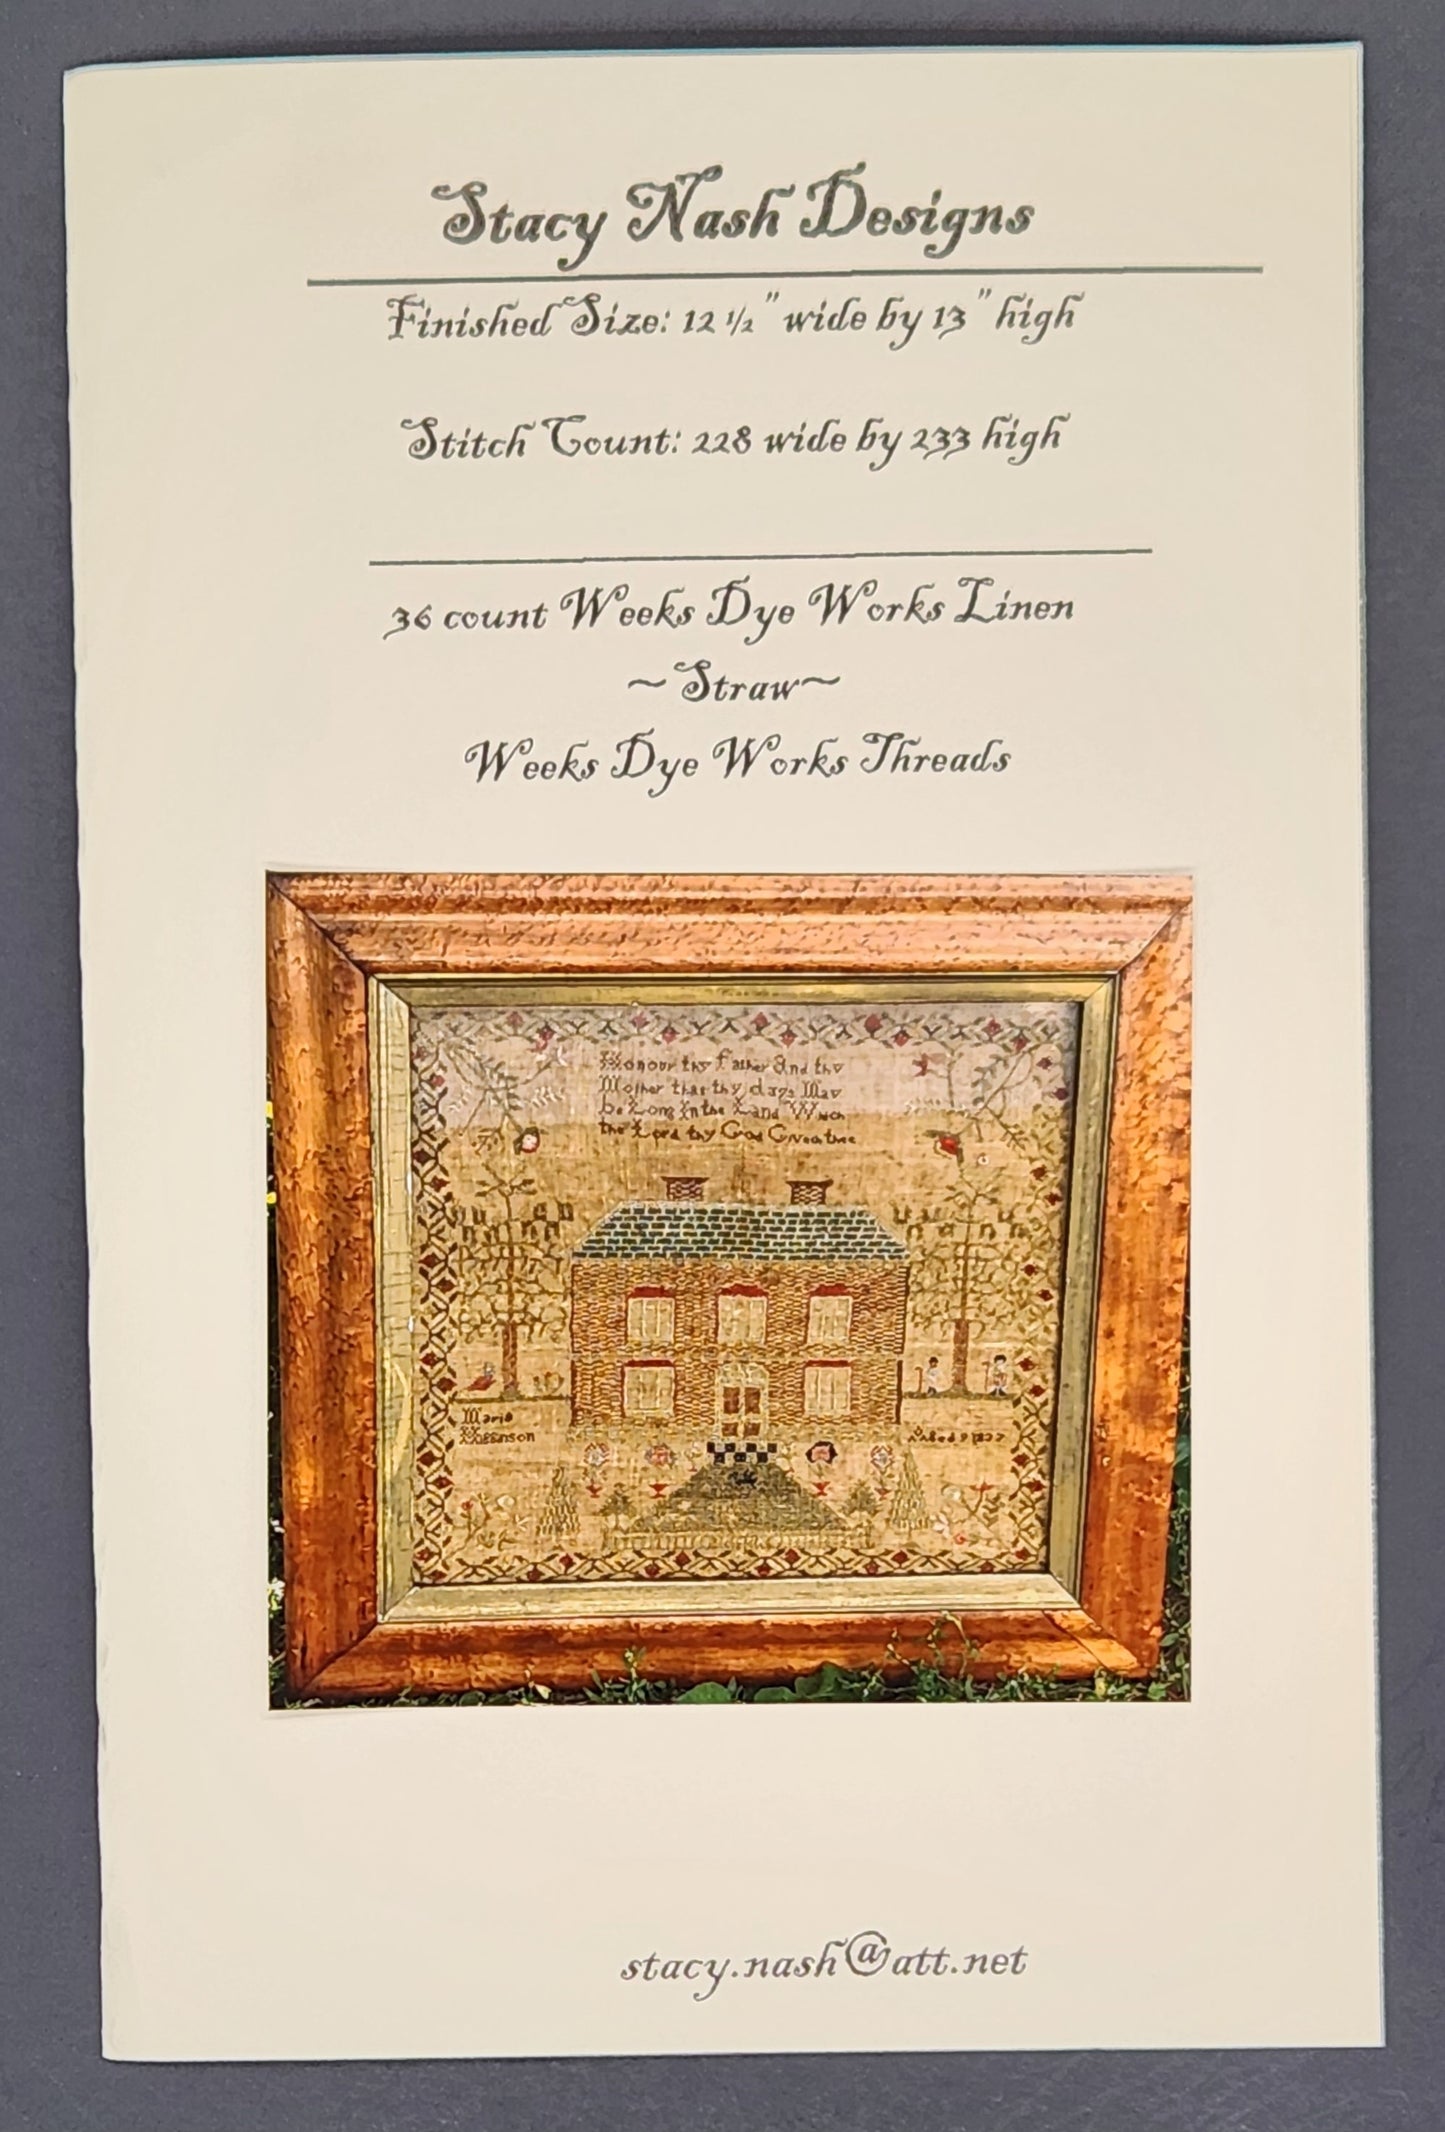 Stacy Nash Designs
Finished Size: 12 ½" wide by 13" high
Stitch Count: 228 wide by 233 high
36 count Weeks Dye Works Linen
~Straw~
Weeks Dye Works Threads
Honour thy father And thy
Mother that thy days May
be Long In the Land Wich
the Lord thy God Giveth thee
Maria
stacy.nash@att.net